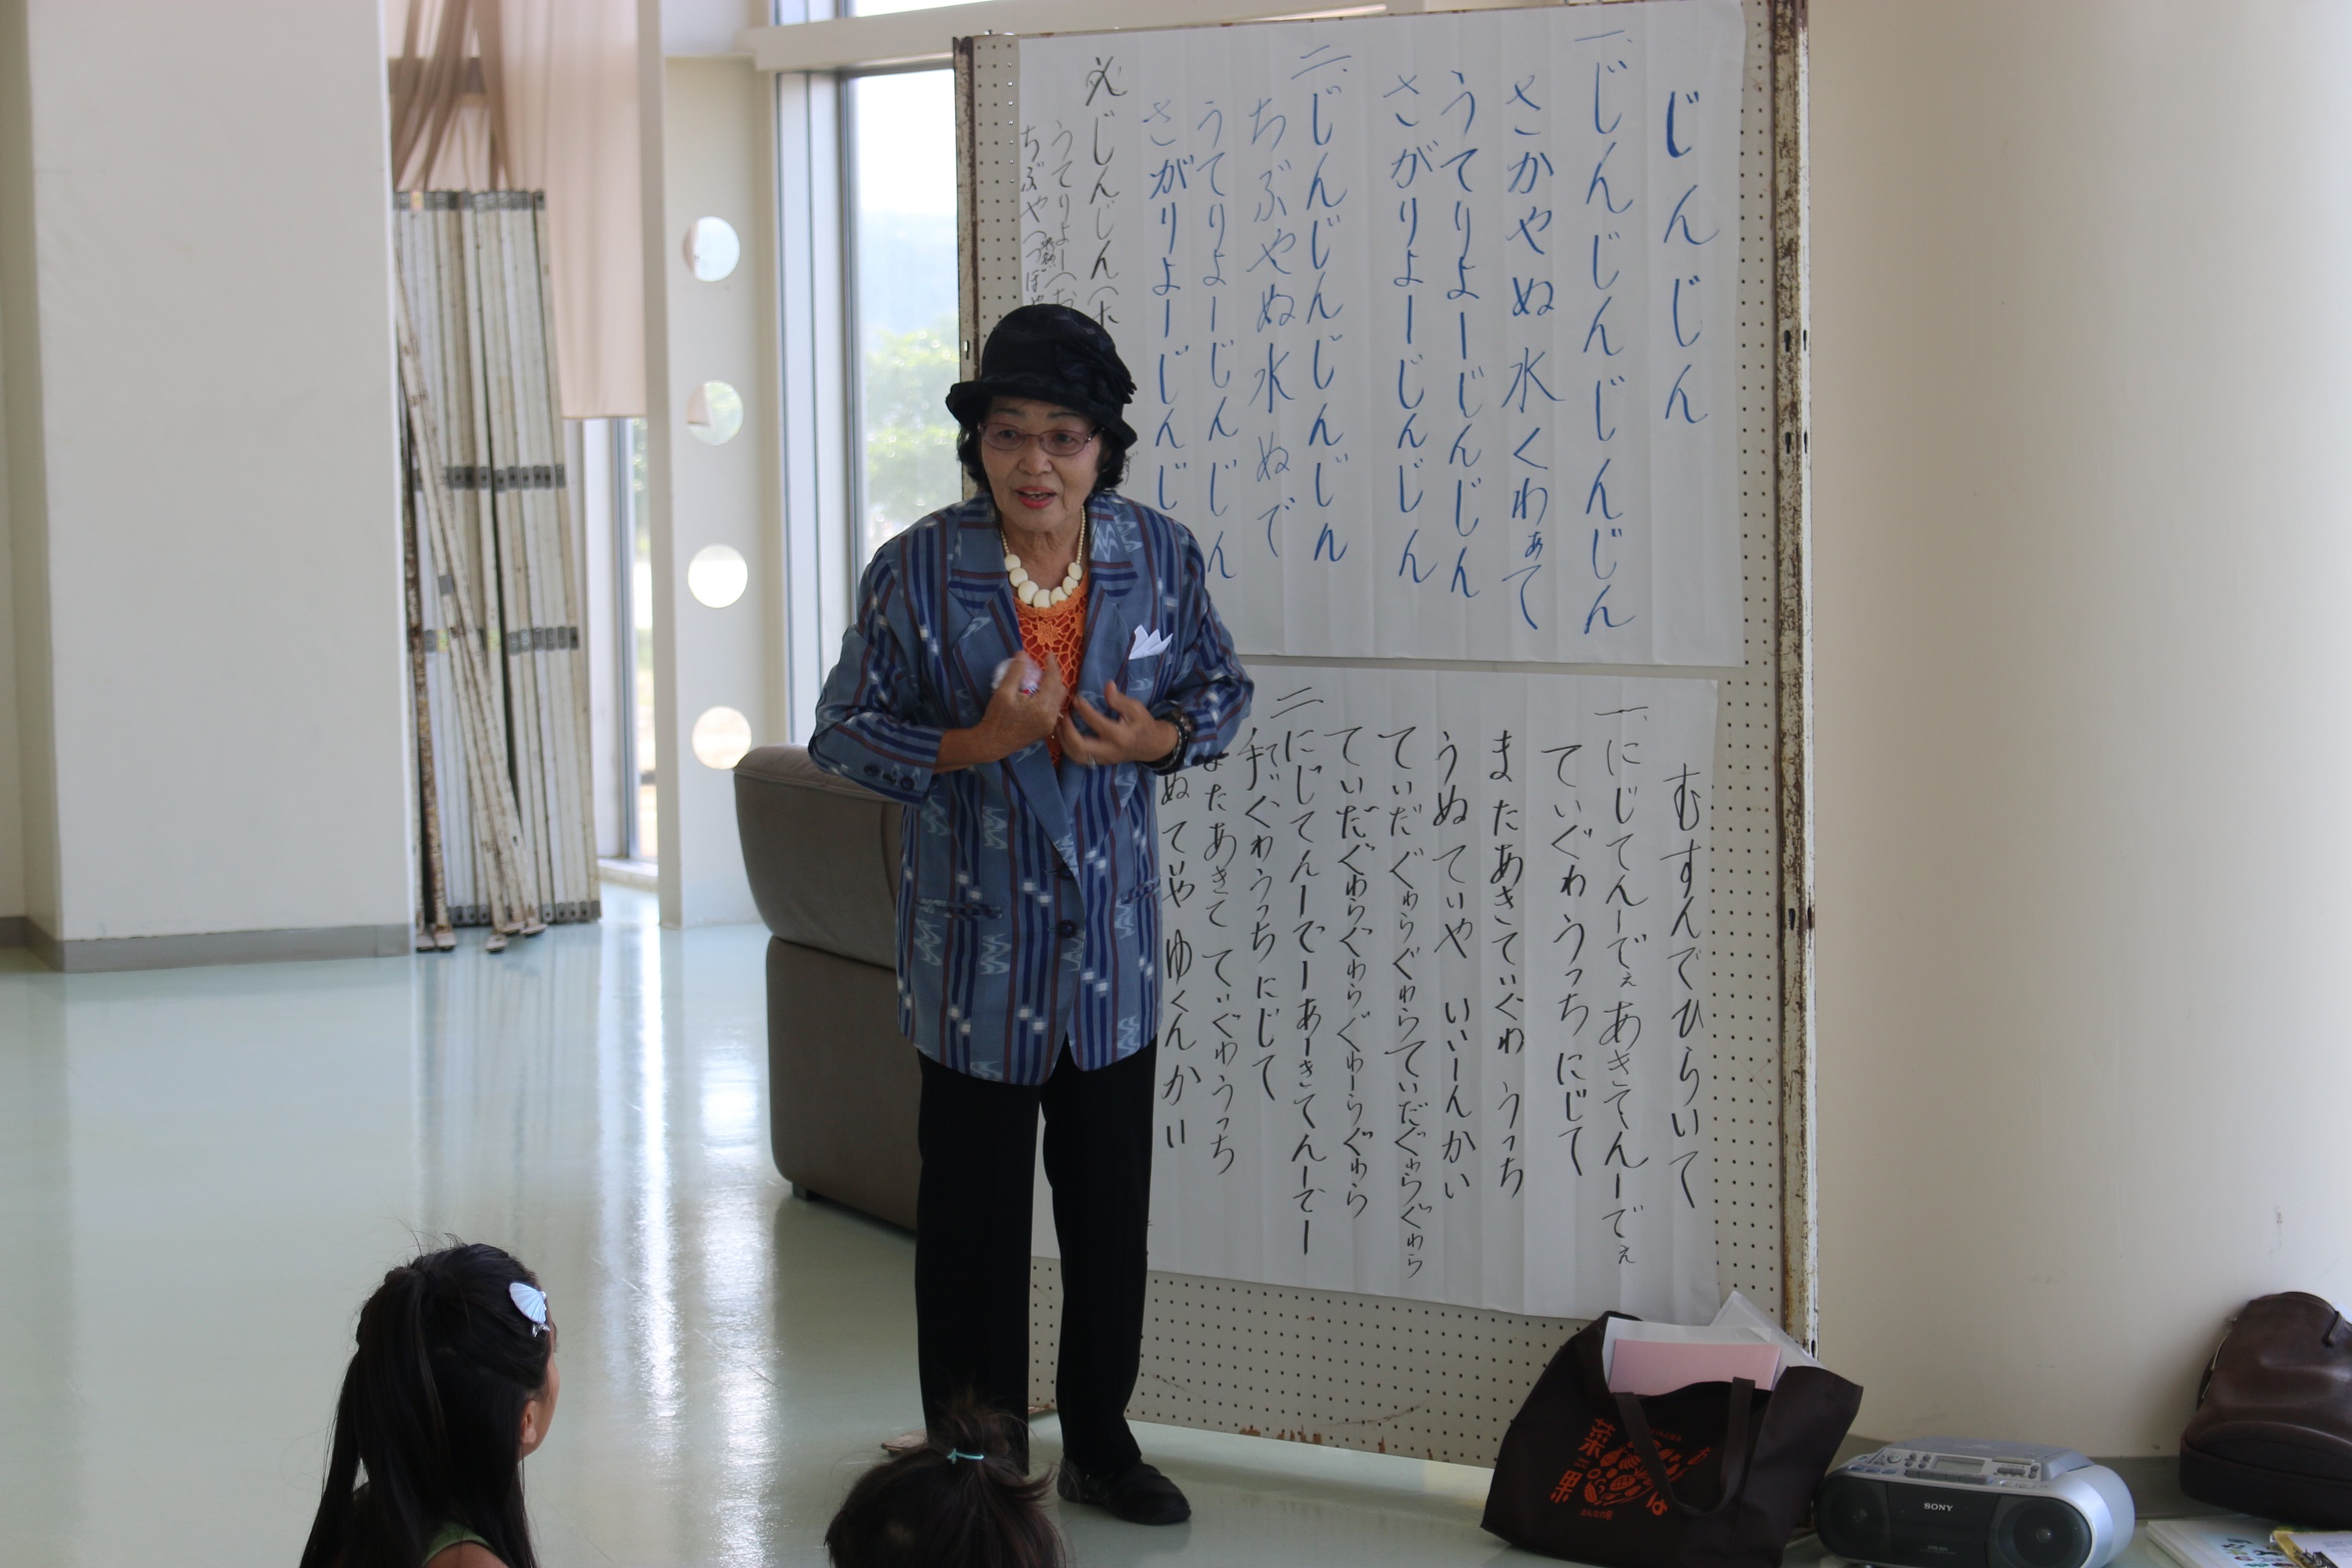 じんじん
一、じんじんじんじんじん
さかやぬ水くわぁて
うてりよーじんじん
さがりよーじんじん
二、じんじんじんじん
ちぶやぬ水ぬで
うてりよーじんじん
さがりよーじんじ
じんじん
うてりよー
ちぶや
むすんでひらいて
一、にじてんーでぇあきてんーでぇ
てぃぐわうっちにじて
またあきてぃぐわうっち
うぬてぃや いぃーんかい
てぃだぐゎらぐゎらてぃだぐゎらぐゎら
てぃだぐゎらぐゎらぐゎーらぐゎら
二、にじてんーでーあーきてんーでー
手ぐわうっちにじて
またあきててぃぐわうっち
ぬてぃやゆくんかい
菜
果
SONY